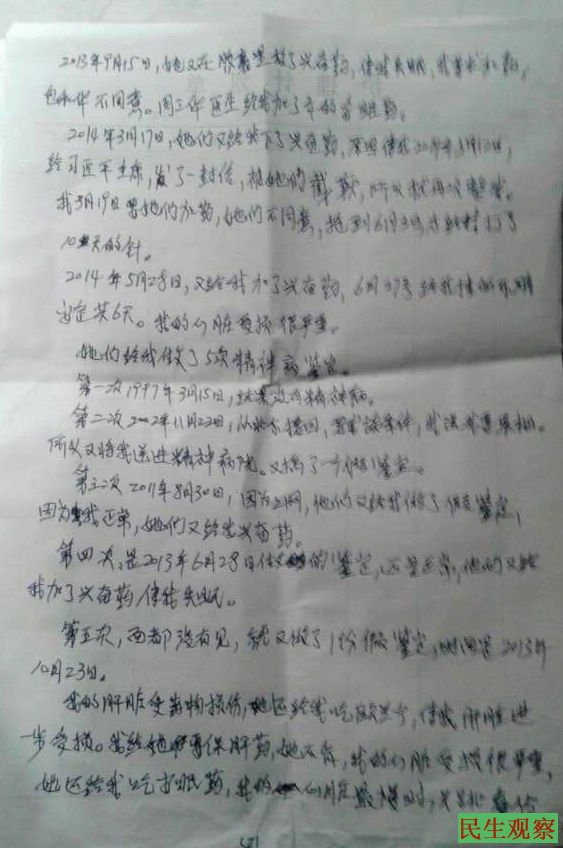 2013年9月15日,她又在胶囊里放了兴奋药,使我失眠,我要求加药,
包和伴不同意。周三作医生给我加了量的安眠药。
2014年3月17日,她们又给我下了兴奋药,原因使我2014年3月10日,
给习近平主席,发了一封信,揭她们 欺,所以就再次整我。
我3月19日要她们加药,她们不同意,拖到6月3日才
10天的针。
2014年5月28日,又给我加了兴奋药,6月 号给我
安定共6天。我的心脏受损很严重。
她们给我做了5次精神病鉴定。
第一次1997年3月15日,结果没有精神病。
第二次2002年11月22日,从北京接回,要我谈条件,我说我要真相。
所以又将我送进精神病院。又搞了一个假鉴定。
第三次2011年8月30日,因为上网,他们又给我做了假鉴定,
因为我正常,她们又给我兴奋药。
第四次,是2013年6月28日做的鉴定,还是正常,他们又给
我加了兴奋药,使我失眠。
第五次,面都没有见,就又做了1份假鉴定,时间是2013年
10月23日。
我的肝脏受药物损伤,她还给我吃 ,使我肝脏进
一步受损。我给她要保肝药,她不肯,我的心脏受损很严重,
她还给我吃 药,我的心脏
民生观察